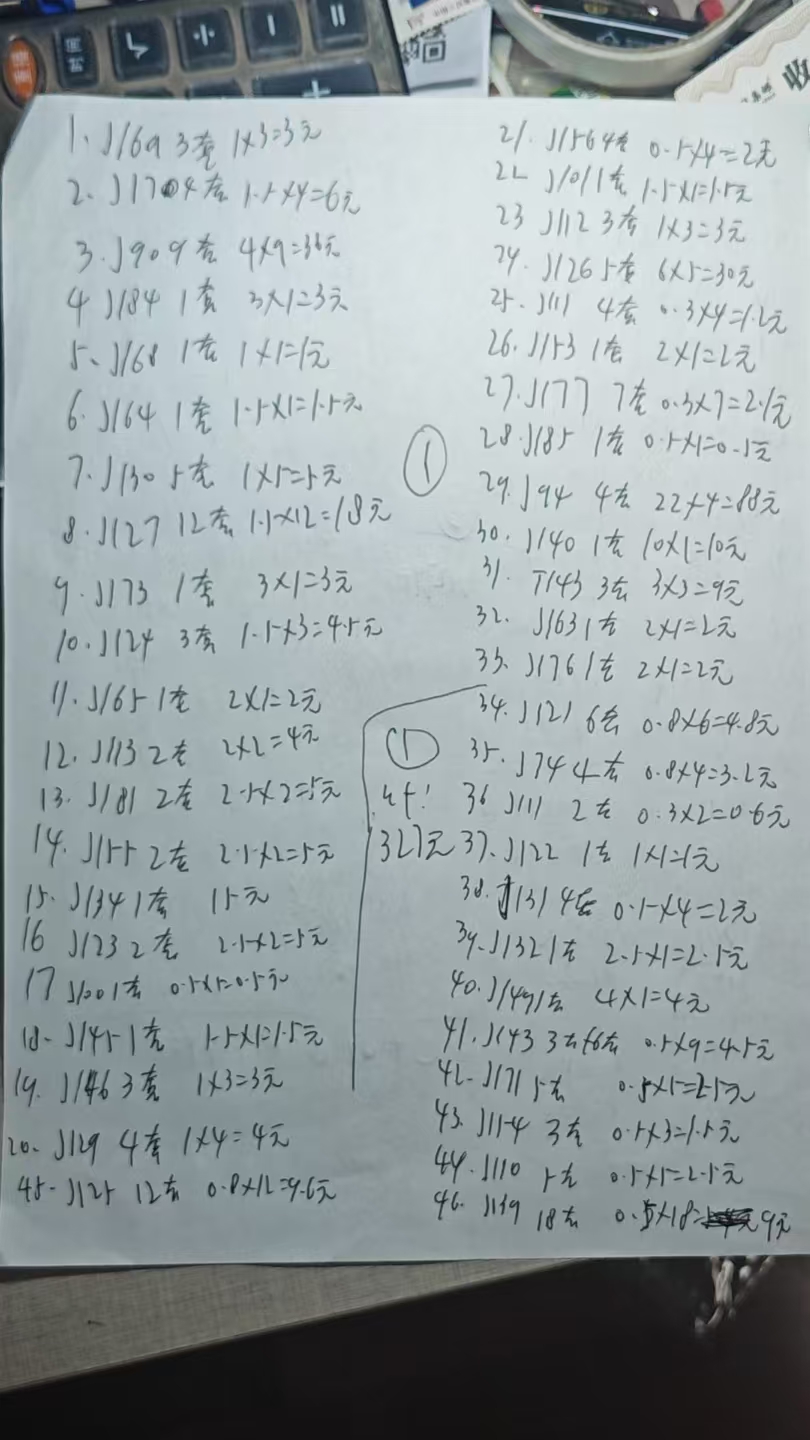 1. J169 3套 1×3=3元
2. J170 4套 1.5×4=6元
3. J90 9套 4×9=36元
4 J184 1套 3×1=3元
5、J168 1套 1×1=1元
6. J164 1套 1.5×1=1.5元
7. J130 5套 1×5=5元
8. J127 12套 1.5×12=18元
9. J173 1套 3×1=3元
10. J124 3套 1.5×3=4.5元
11. J165 1套 2×1=2元
12. J113 2套 2×2=4元
13. J181 2套 2.5×2=5元
14. J155 2套 2.5×2=5元
15. J134 1套 15元
16 J123 2套 2.5×2=5元
17 J100 1套 0.5×1=0.5元
18. J145 1套 1.5×1=1.5元
19. J146 3套 1×3=3元
20. J129 4套 1×4=4元
45. J125 12套 0.8×12=9.6元
①
21. J156 4套 0.5×4=2元
22 J101 1套 1.5×1=1.5元
23 J112 3套 1×3=3元
24. J126 5套 6×5=30元
25. J111 4套 0.3×4=1.2元
26. J153 1套 2×1=2元
27. J177 7套 0.3×7=2.1元
28. J185 1套 0.5×1=0.5元
29. J94 4套 22×4=88元
30. J140 1套 10×1=10元
31. T143 3套 3×3=9元
32. J163 1套 2×1=2元
33. J176 1套 2×1=2元
34. J121 6套 0.8×6=4.8元
35. J74 4套 0.8×4=3.2元
36 J111 2套 0.3×2=0.6元
37. J122 1套 1×1=1元
38. J131 4套 0.5×4=2元
39. J132 1套 2.5×1=2.5元
40. J149 1套 4×1=4元
41. J143 3套+6套 0.5×9=4.5元
42. J171 5套 0.5×5=2.5元
43. J154 3套 0.5×3=1.5元
44. J110 5套 0.5×5=2.5元
46. J139 18套 0.5×18=9元
①
327元
收